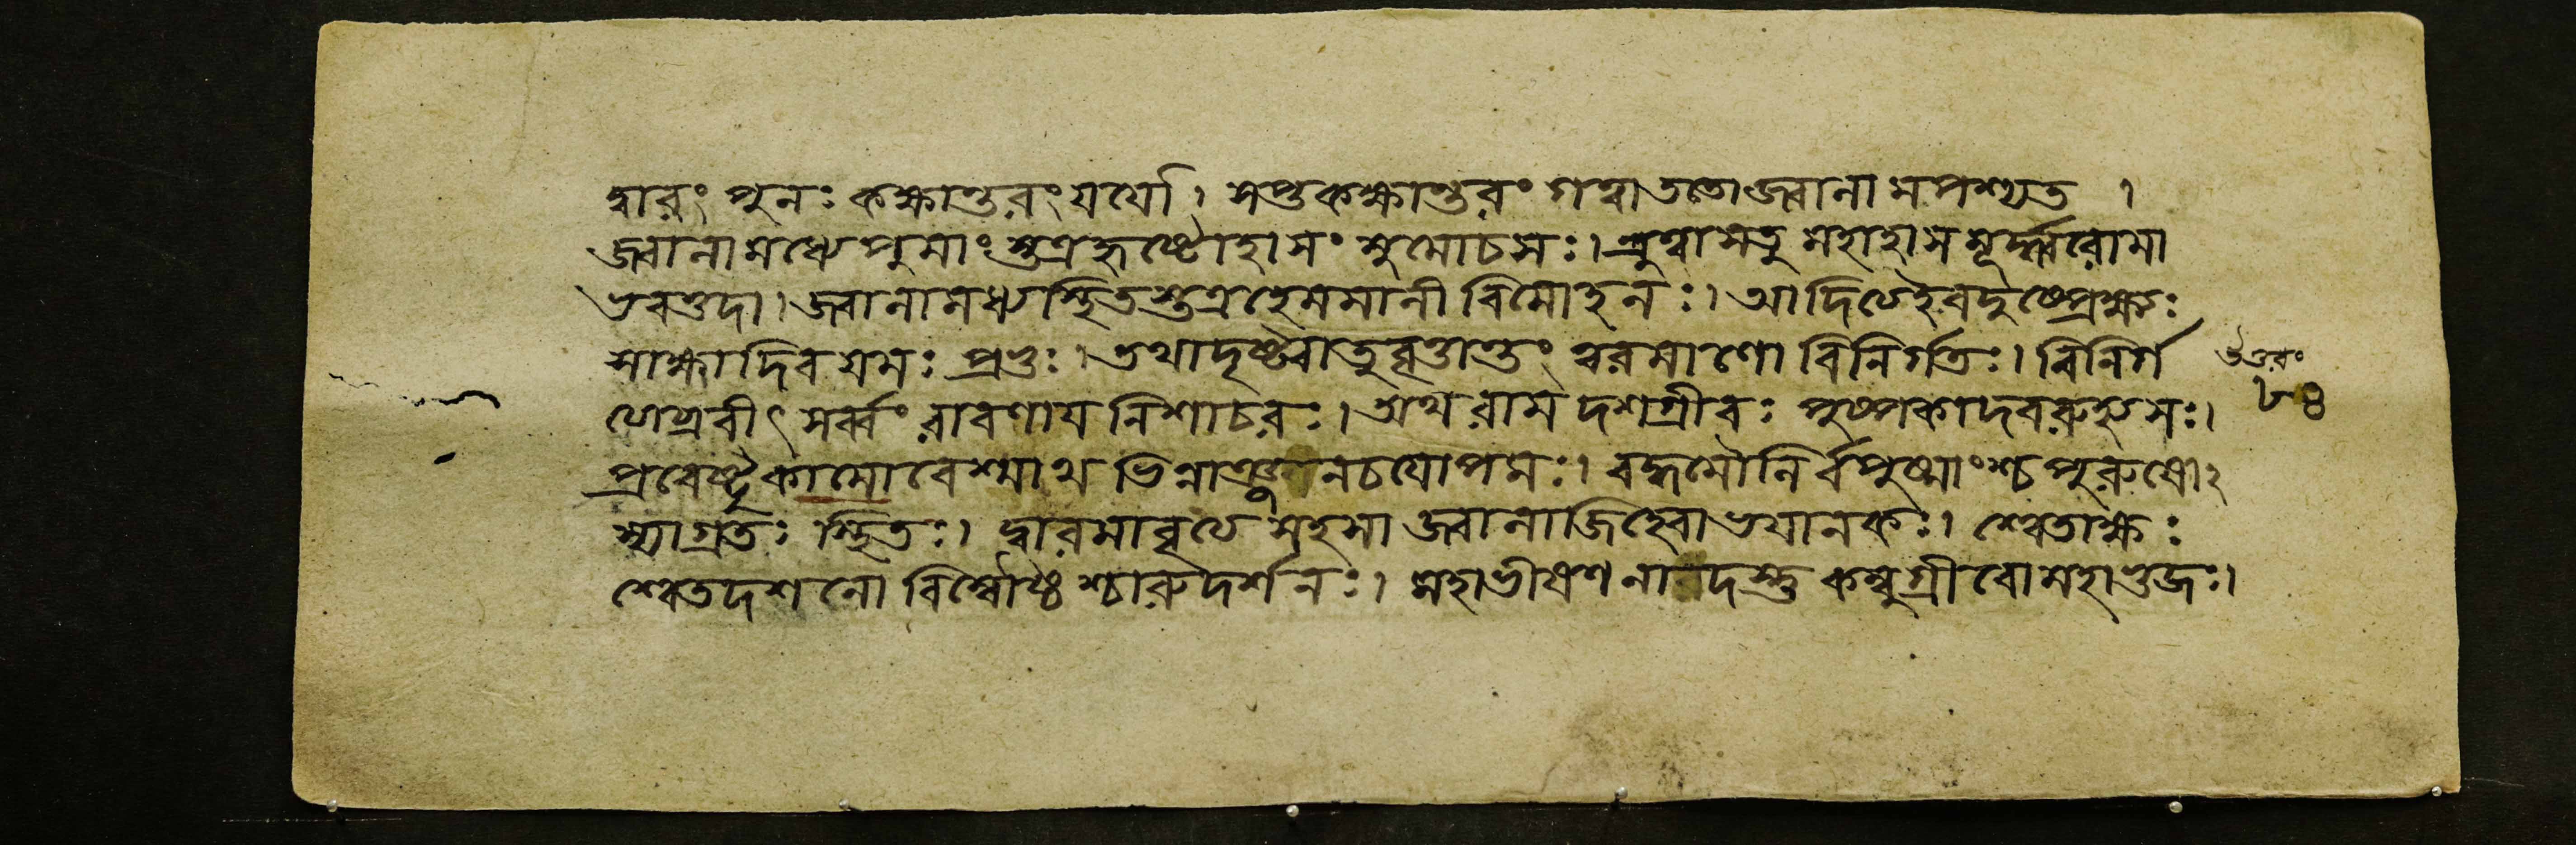 দ্বারং পুনঃ কক্ষান্তরং যযৌ। সপ্তকক্ষান্তরং গত্বা ততো জ্বালামপশ্যত ।
জ্বালামধ্যে পুমাংস্তত্র হৃষ্টো হাসং মুমোচ সঃ। শ্রুত্বা সতু মহাহাসমূর্দ্ধ্বরোমা
ভবত্তদা। জ্বালামধ্যস্থিতস্তত্র হেমমালী বিমোহনঃ। আদিত্য ইব দুষ্প্রেক্ষ্যঃ
সাক্ষাদিব যমঃ প্রভুঃ। তথা দৃষ্ট্বা তু বৃত্তান্তং ত্বরমাণো বিনির্গতঃ। বিনির্গ
ত্যাব্রবীৎ সর্ব্বং রাবণায নিশাচরঃ। অথ রাম দশগ্রীবঃ পুষ্পকাদবরুহ্য সঃ।
প্রবেষ্টুকামো বেশ্মাথ ভিন্নাঞ্জনচযোপমঃ। বপুষ্মাংশ্চ পুরুষো
স্যাগ্রতঃ স্থিতঃ। দ্বারমাবৃত্য সহসা জ্বালাজিহ্বো ভযানকঃ। শ্বেতাক্ষঃ
শ্বেতদশনো বিম্বৌষ্ঠশ্চারুদর্শনঃ। মহাভীষণ কম্বুগ্রীবো মহাভুজঃ।
উত্তরং
৮৪